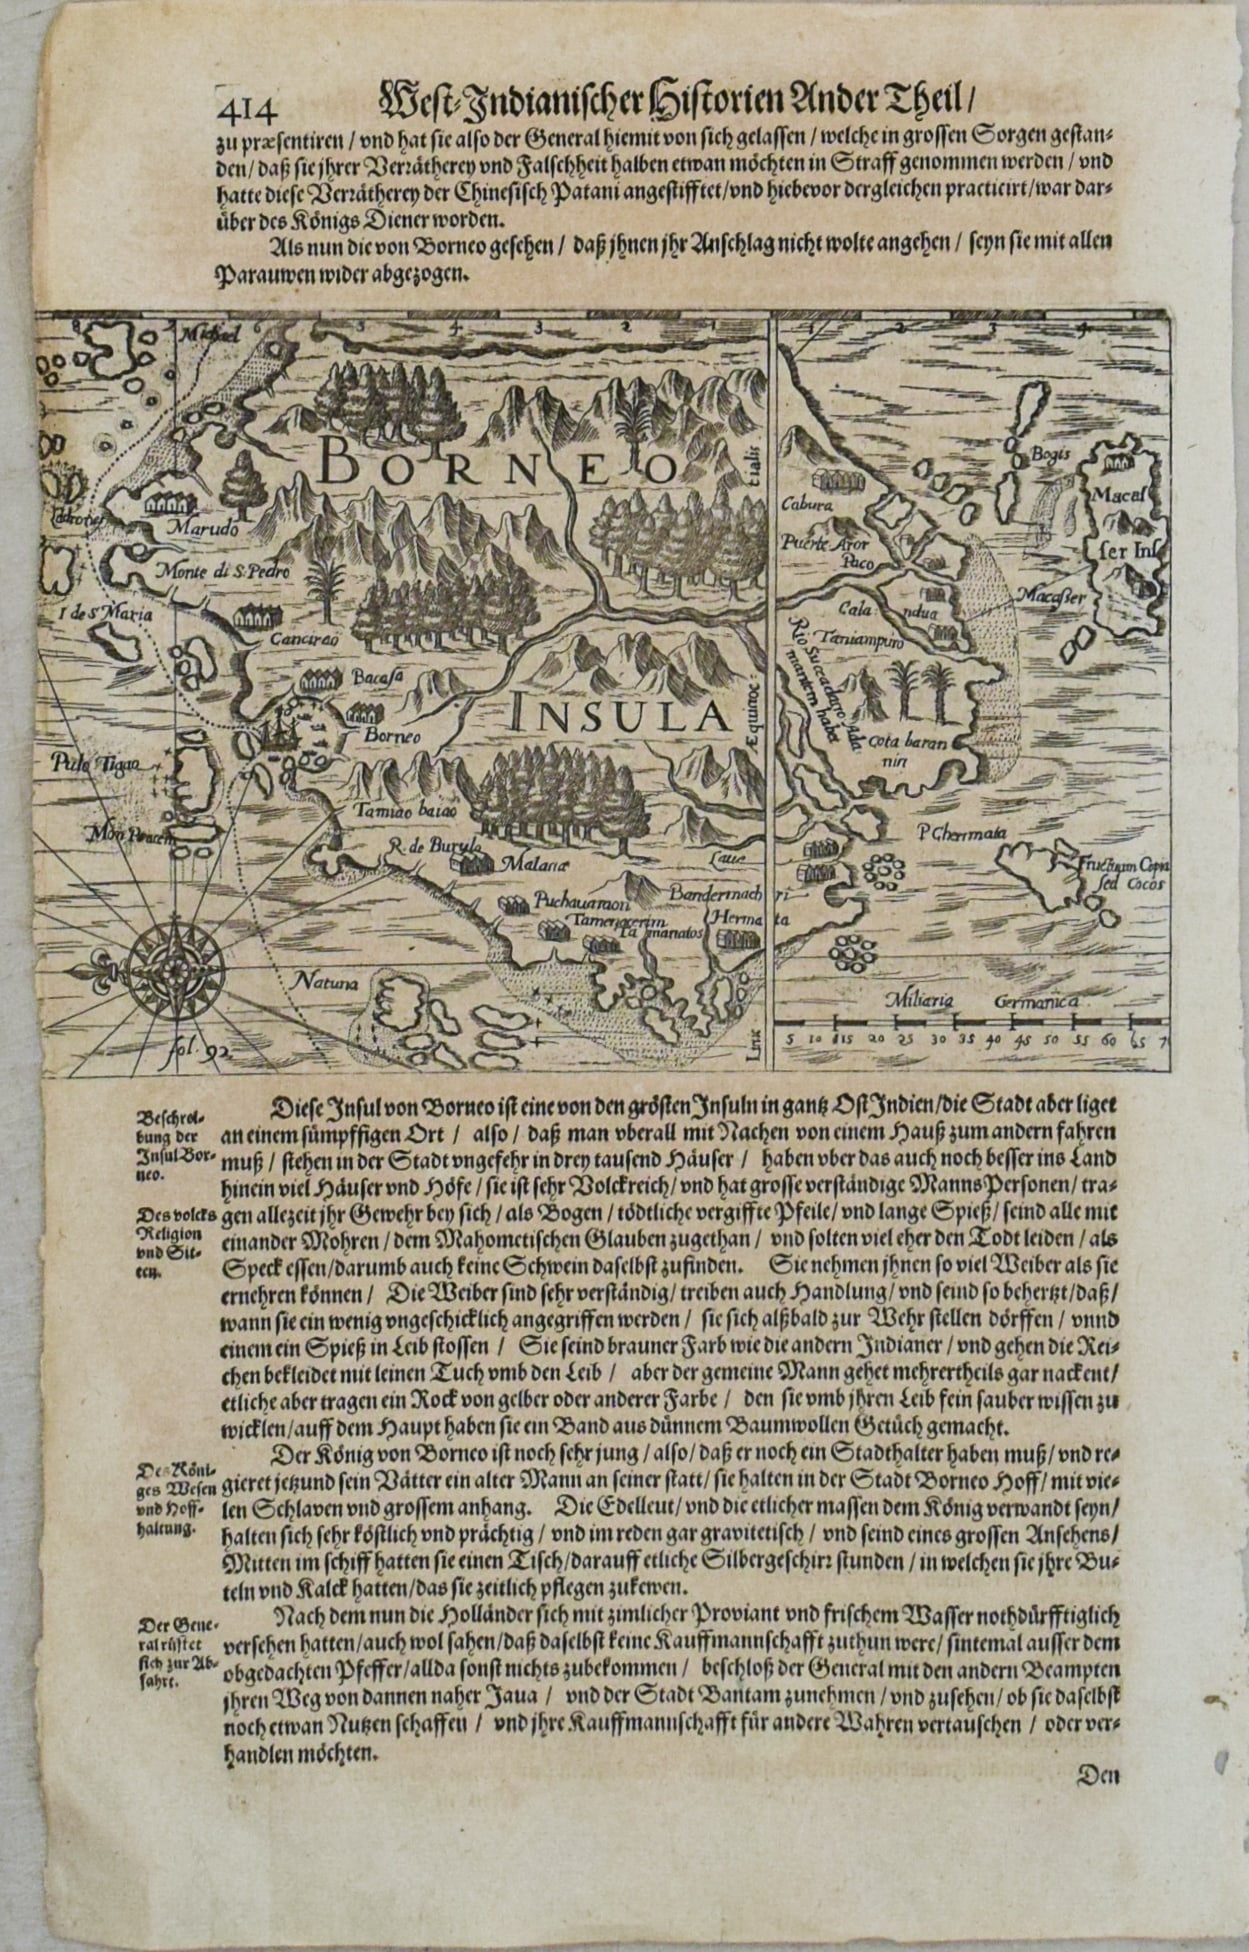 414 West-Indianischer Historien Ander Theil/
zu præsentiren / vnd hat sie also der General hiemit von sich gelassen / welche in grossen Sorgen gestan-
den / daß sie jhrer Verrätherey vnd Falschheit halben etwan möchten in Straff genommen werden / vnd
hatte diese Verrätherey der Chinesisch Patani angestifftet / vnd hiebevor dergleichen practicirt / war dar-
über des Königs Diener worden.
Als nun die von Borneo gesehen / daß jhnen jhr Anschlag nicht wolte angehen / seyn sie mit allen
Parauwen wider abgezogen.
6 5 4 3 2 1 1 2 3 4
BORNEO
tialis
Bogis
Macas
ser Ins
Cabura
Marudo
Puerte Aror
Paco
Monte di S. Pedro
Macaßer
I de S. Maria
Cala ndua
Cancirao
Taniampuro
Rio Succadano
Bacasa
INSULA
Æquinoc-
Borneo
cota baran
nin
Pulo Tigao
Tamiao baiao
R. de Burulo
P Chermata
Malana
Laue
Fructuum Copia
sed Cocos
Puchauaraon
Bandermach ri
Tamenacerim
Ta manatos
Herma ta
Natuna
Miliaria Germanica
5 10 15 20 25 30 35 40 45 50 55 60 65 7
fol. 92
Beschrei-
bung der
Insul Bor-
neo.
Diese Insul von Borneo ist eine von den grösten Insuln in gantz Ost Indien / die Stadt aber liget
an einem sümpffigen Ort / also / daß man vberall mit Nachen von einem Hauß zum andern fahren
muß / stehen in der Stadt vngefehr in drey tausend Häuser / haben vber das auch noch besser ins Land
hinein viel Häuser vnd Höfe / sie ist sehr Volckreich / vnd hat grosse verständige Manns Personen / tra-
Des volcks
Religion
vnd Sit-
ten.
gen allezeit jhr Gewehr bey sich / als Bogen / tödtliche vergiffte Pfeile / vnd lange Spieß / seind alle mit
einander Mohren / dem Mahometischen Glauben zugethan / vnd solten viel eher den Todt leiden / als
Speck essen / darumb auch keine Schwein daselbst zufinden. Sie nehmen jhnen so viel Weiber als sie
ernehren können / Die Weiber sind sehr verständig / treiben auch Handlung / vnd seind so behertzt / daß /
wann sie ein wenig vngeschicklich angegriffen werden / sie sich alßbald zur Wehr stellen dörffen / vnnd
einem ein Spieß in Leib stossen / Sie seind brauner Farb wie die andern Indianer / vnd gehen die Rei-
chen bekleidet mit leinen Tuch vmb den Leib / aber der gemeine Mann gehet mehrertheils gar nackent /
etliche aber tragen ein Rock von gelber oder anderer Farbe / den sie vmb jhren Leib fein sauber wissen zu
wicklen / auff dem Haupt haben sie ein Band aus dünnem Baumwollen Getüch gemacht.
Der König von Borneo ist noch sehr jung / also / daß er noch ein Stadthalter haben muß / vnd re-
Des Köni-
ges Wesen
vnd Hoff-
haltung.
gieret jetzund sein Vätter ein alter Mann an seiner statt / sie halten in der Stadt Borneo Hoff / mit vie-
len Schlaven vnd grossem anhang. Die Edelleut / vnd die etlicher massen dem König verwandt seyn /
halten sich sehr köstlich vnd prächtig / vnd im reden gar gravitetisch / vnd seind eines grossen Ansehens /
Mitten im schiff hatten sie einen Tisch / darauff etliche Silbergeschirr stunden / in welchen sie jhre Bu-
teln vnd Kalck hatten / das sie zeitlich pflegen zukewen.
Der Gene-
ral rüstet
sich zur Ab-
fahrt.
Nach dem nun die Holländer sich mit zimlicher Proviant vnd frischem Wasser nothdürfftiglich
versehen hatten / auch wol sahen / daß daselbst keine Kauffmannschafft zuthun were / sintemal ausser dem
obgedachten Pfeffer / allda sonst nichts zubekommen / beschloß der General mit den andern Beampten
jhren Weg von dannen naher Java / vnd der Stadt Bantam zunehmen / vnd zusehen / ob sie daselbst
noch etwan Nutzen schaffen / vnd jhre Kauffmannschafft für andere Wahren vertauschen / oder ver-
handlen möchten.
Den